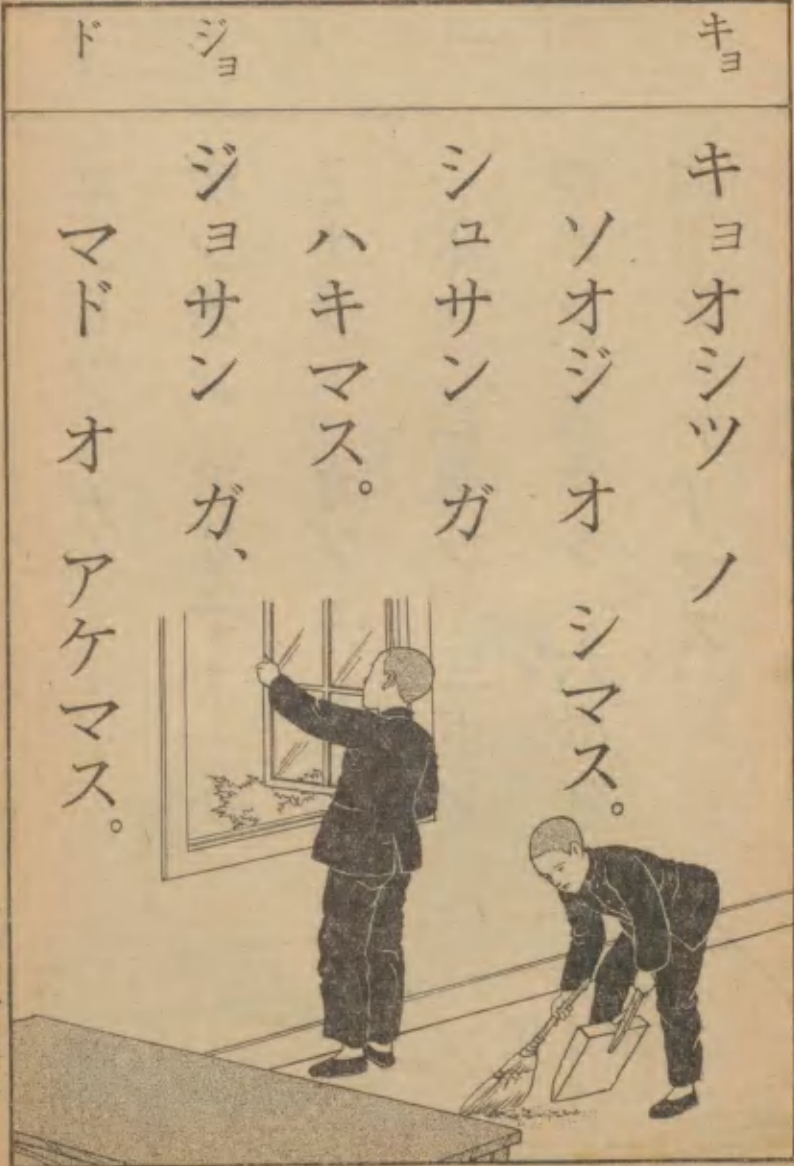 キョ
ジョ
ド
キョオシツ ノ
ソオジ オ シマス。
シュサン ガ
ハキマス。
ジョサン ガ、
マド オ アケマス。